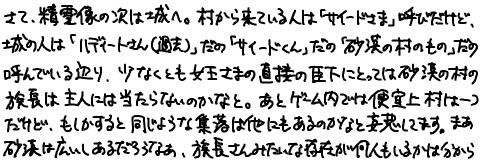 さて、精霊像の次は城へ。村から来ている人は「サイードさま」呼びだけど、
城の人は「ハディートさん(過去)」だの「サイードくん」だの「砂漠の村のもの」だの
呼んでいる辺り、少なくとも女王さまの直接の臣下にとっては砂漠の村の
族長は主人には当たらないのかなと。あとゲーム内では便宜上村は一つ
だけど、もしかすると同じような集落は他にもあるのかなと妄想してます。まあ
砂漠は広いしあるだろうなあ、族長さんみたいな存在が何人もいるかは分から